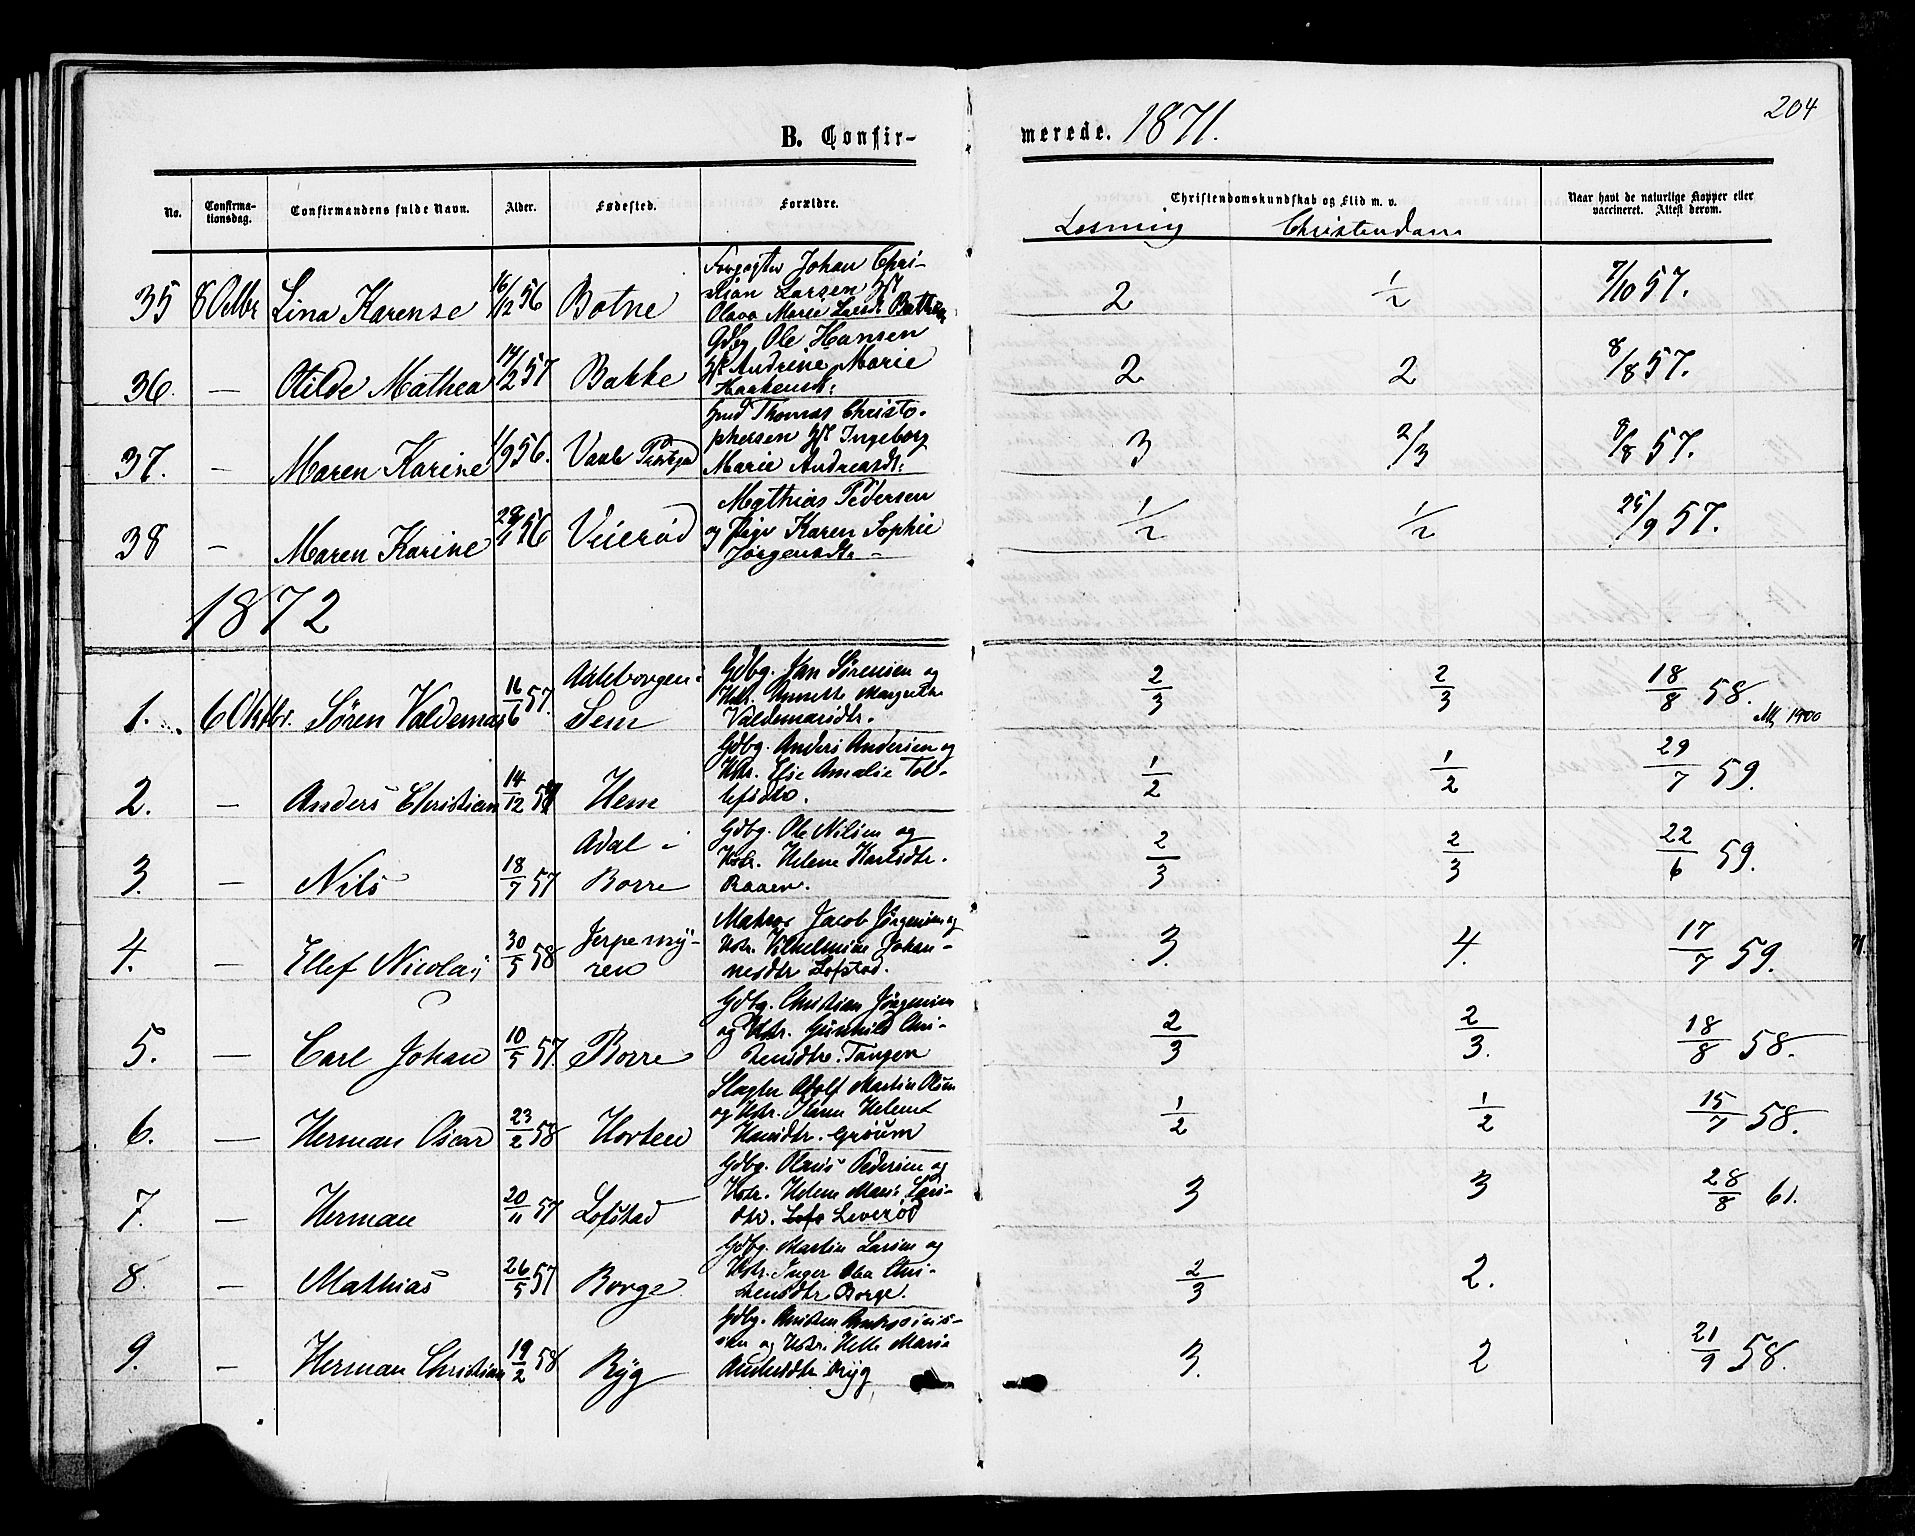 204
B. Confir-
merede. 1871.
No.
Confirma-
tionsdag.
Confirmandens fulde Navn.
Alder.
Fødested.
Forældre.
Christendomskundskab og Flid m. v.
Naar havt de naturlige Kopper eller
vaccineret. Attest derom.
Læsning Christendom
35 8 Octbr Lina Karense 16/12 56 Botne
Johan Chri-
stian Larsen
Olava Marie
2 1/2 7/10 57.
36. — Otilde Mathea 14/2 57 Bakke
Gdbg Ole Hansen
Andrine Marie
Haakensdt:
2 2 8/8 57.
37. — Maren Karine 1/9 56. Vaale
Thomas Christo-
phersen Ingeborg
Marie Andreasdt:
3 2/3 8/8 57.
38 — Maren Karine 56 Veierød
Mathias Pedersen
og Pige Karen Sophie
Jørgensdt. —
1/2 1/2 25/9 57.
1872
1. 6 Oktbr. Søren Valdemar 16/6 57.
Sem
Gdbg. Jan Sørensen og
Hstr. Annette Margrethe
Valdemarsdtr.
2/3 2/3 18/8 58.
1900
2. — Anders Christian 14/12 Hem
Gdbg. Anders Andersen og
Hstr. Else Amalie Tol-
lefsdtr.
1/2 1/2 29/7 59.
3. — Nils 18/7 57
Adal i
Borre
Gdbg. Ole Nilsen og
Hstr. Helene Karlsdtr.
Raaen.
2/3 2/3 22/6 59.
4. — Ellef Nicolai 30/5 58
Jerpemy-
ren
Matros Jacob Jørgensen og
Hstr. Vilhelmine Johan-
nesdtr Lofstad.
3. 4. 17/7 59.
5. — Carl Johan 10/5 57. Borre
Gdbg. Christian Jørgensen
og Hstr. Gunhild Chri-
stensdtr. Tangen
2/3 2/3. 18/8 58.
6. — Herman Oscar 23/2 58 Horten
Slagter Adolf Martin Olsen
og Hstr. Helene
Hansdtr. Grøum
1/2 1/2 15/7 58.
7. — Herman 20/11 57 Lofstad
Gdbg. Olaus Pedersen og
Hstr. Helene Marie Lars-
dtr. Leverød
3 3 28/8 61.
8. — Mathias 26/5 57 Borge
Gdbg. Martin Larsen og
Hstr. Inger Olea Chri-
stensdtr Borge.
2/3 2.
9. — Herman Christian 19/2 58 Ryg
Gdbg. Christen
sen og Hstr. Helle Marie
Andersdtr Ryg
3. 2 21/9 58.